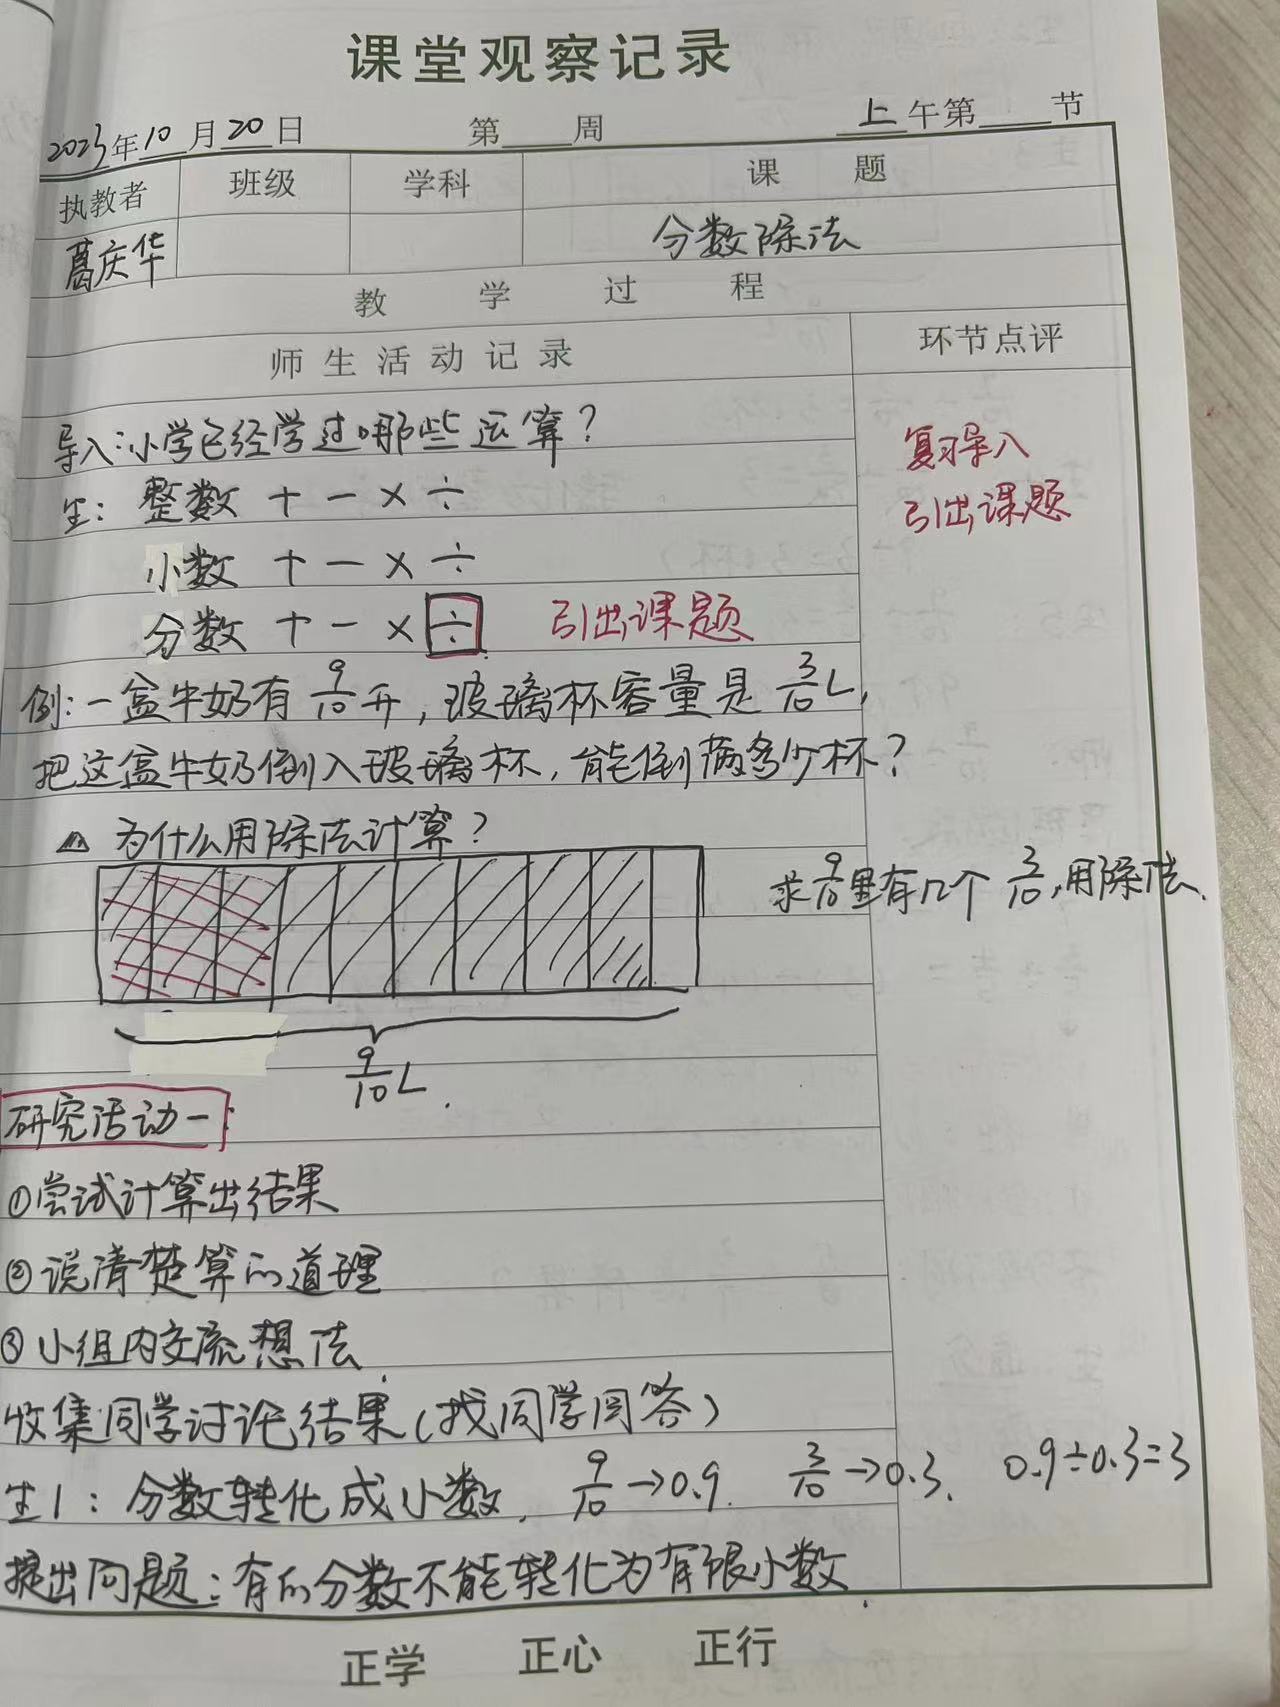 课堂观察记录
2023年10月20日 第 周 上午第 节
执教者 班级 学科 课题
葛庆华 分数除法
教学过程
师生活动记录 环节点评
导入:小学已经学过哪些运算?
复习导入
生: 整数 + - × ÷
引出课题
小数 + - × ÷
分数 + - × ÷ 引出课题
例:一盒牛奶有9/10升,玻璃杯容量是3/10L,
把这盒牛奶倒入玻璃杯,能倒满多少杯?
△ 为什么用除法计算?
求9/10里有几个3/10,用除法.
9/10 L.
研究活动一:
①尝试计算出结果
②说清楚算的道理
③小组内交流想法.
收集同学讨论结果(找同学回答)
生1: 分数转化成小数. 9/10→0.9. 3/10→0.3. 0.9÷0.3=3
提出问题:有的分数不能转化为有限小数.
正学 正心 正行